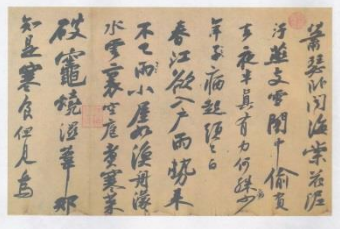 蕭瑟卧聞海棠花泥
汙燕支雪闇中偷負
去夜半真有力何殊少
年子病起須已白
春江欲入户雨勢來
不已雨小屋如漁舟濛
水雲裏空庖煑寒菜
破竈燒濕葦那
知是寒食但見烏